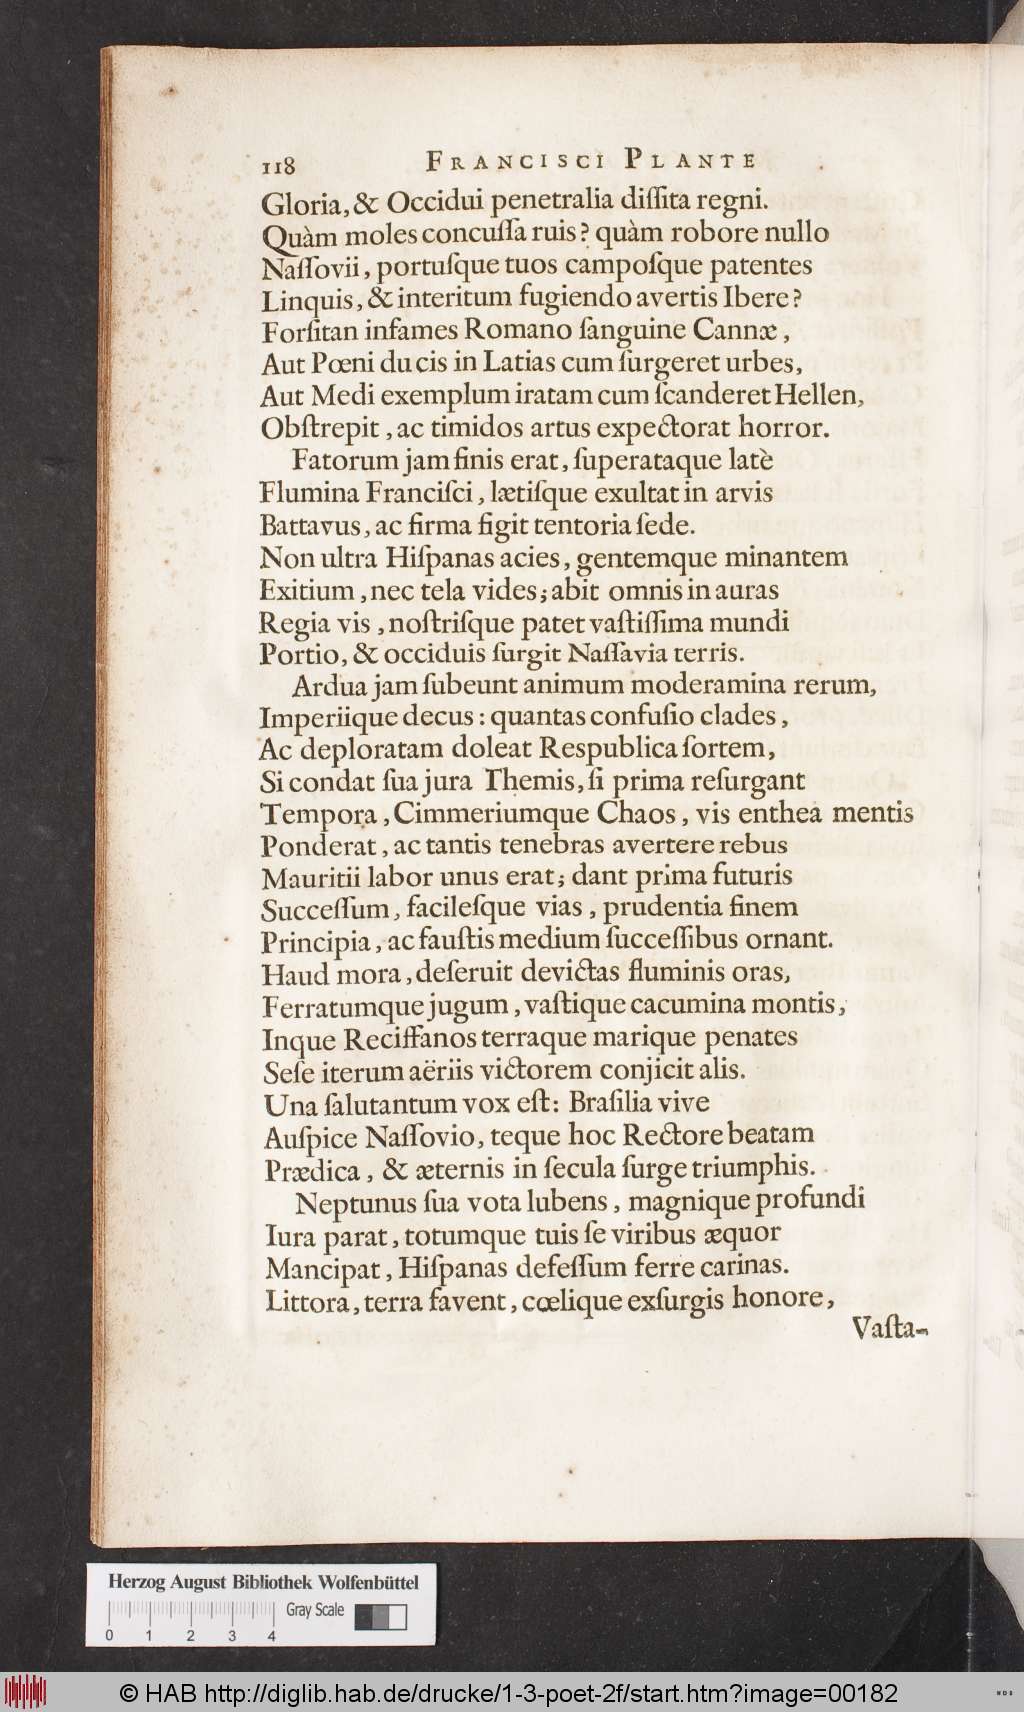 118 FRANCISCI PLANTE
Gloria, & Occidui penetralia diſſita regni.
Quàm moles concuſſa ruis? quàm robore nullo
Naſſovii, portuſque tuos campoſque patentes
Linquis, & interitum fugiendo avertis Ibere?
Forſitan infames Romano ſanguine Cannæ,
Aut Pœni ducis in Latias cum ſurgeret urbes,
Aut Medi exemplum iratam cum ſcanderet Hellen,
Obſtrepit, ac timidos artus expectorat horror.
Fatorum jam finis erat, ſuperataque latè
Flumina Franciſci, lætiſque exultat in arvis
Battavus, ac firma figit tentoria ſede.
Non ultra Hiſpanas acies, gentemque minantem
Exitium, nec tela vides; abit omnis in auras
Regia vis, noſtriſque patet vaſtiſſima mundi
Portio, & occiduis ſurgit Naſſavia terris.
Ardua jam ſubeunt animum moderamina rerum,
Imperiique decus: quantas confuſio clades,
Ac deploratam doleat Reſpublica ſortem,
Si condat ſua jura Themis, ſi prima reſurgant
Tempora, Cimmeriumque Chaos, vis enthea mentis
Ponderat, ac tantis tenebras avertere rebus
Mauritii labor unus erat; dant prima futuris
Succeſſum, facileſque vias, prudentia finem
Principia, ac fauſtis medium ſucceſſibus ornant.
Haud mora, deſeruit devictas fluminis oras,
Ferratumque jugum, vaſtique cacumina montis,
Inque Reciffanos terraque marique penates
Seſe iterum aëriis victorem conjicit alis.
Una ſalutantum vox eſt: Braſilia vive
Auſpice Naſſovio, teque hoc Rectore beatam
Prædica, & æternis in ſecula ſurge triumphis.
Neptunus ſua vota lubens, magnique profundi
Iura parat, totumque tuis ſe viribus æquor
Mancipat, Hiſpanas defeſſum ferre carinas.
Littora, terra favent, cœlique exſurgis honore,
Vaſta-
Herzog August Bibliothek Wolfenbüttel
Gray Scale
0 1 2 3 4
© HAB http://diglib.hab.de/drucke/1-3-poet-2f/start.htm?image=00182